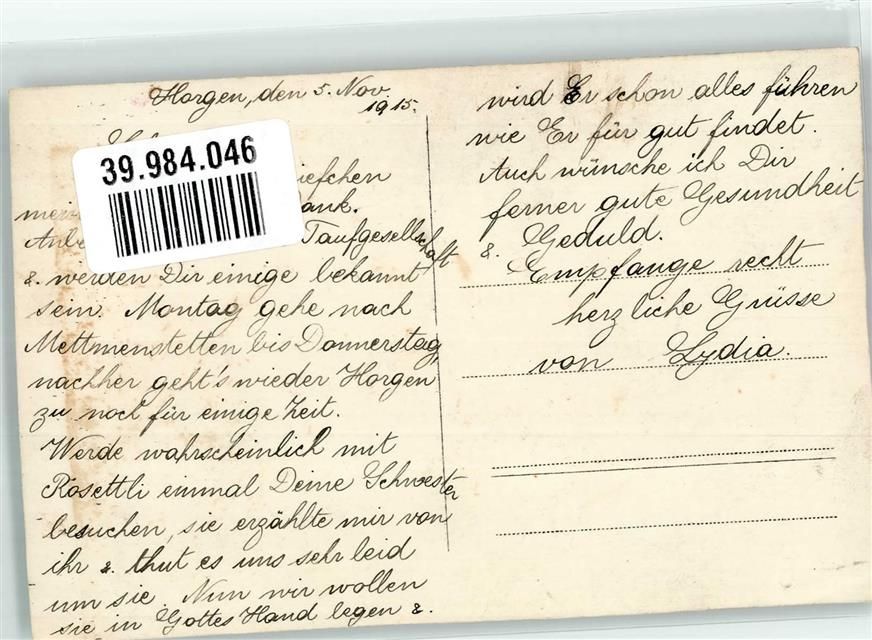 Horgen, den 5. Nov.
1915.
39.984.046
iefchen
ank.
Taufgesellschaft
&. werden Dir einige bekannt
sein. Montag gehe nach
Mettmenstetten bis Donnerstag,
nachher geht's wieder Horgen
zu noch für einige Zeit.
Werde wahrscheinlich mit
Rosettli einmal Deine Schwester
besuchen, sie erzählte mir von
ihr &. thut es uns sehr leid
um sie. Nun wir wollen
sie in Gottes Hand legen &.
wird Er schon alles führen
wie Er für gut findet.
Auch wünsche ich Dir
ferner gute Gesundheit
&. Geduld.
Empfange recht
herzliche Grüsse
von Lydia.